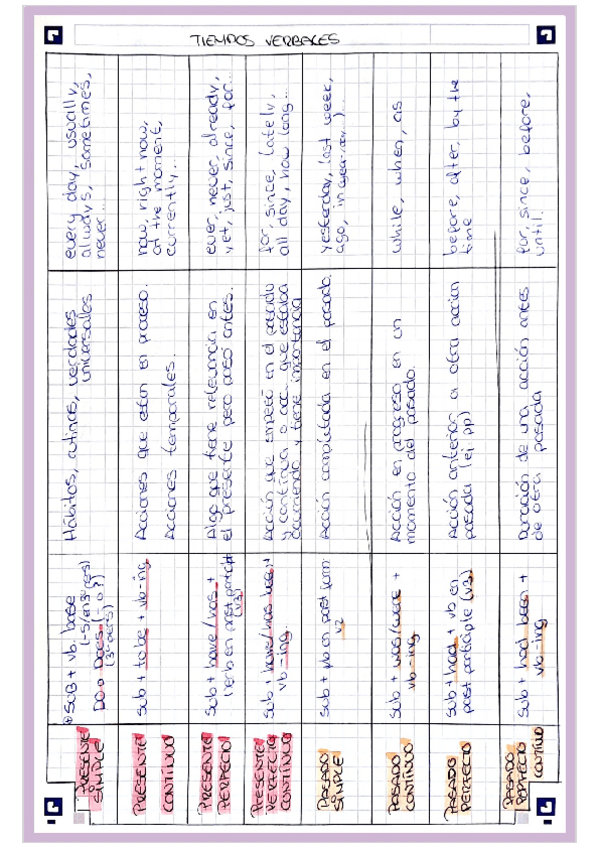 TIEMPOS VERBALES
PRESENTE
SIMPLE
⊕ SUB + vb. base
(-s/en 3ª pers)
DO o DOES (- o ?)
(3ª pers)
Hábitos, rutinas, verdades
universales
every day, usually,
always, sometimes,
never...
PRESENTE
CONTÍNUO
sub + to be + vb-ing
Acciones que estan en proceso.
Acciones temporales.
now, right now,
at the moment,
currently...
PRESENTE
PERFECTO
sub + have/has +
verb en past participle
(v3)
Algo que tiene relevancia en
el presente pero pasó antes.
ever, never, already,
yet, just, since, for...
PRESENTE
PERFECTO
CONTÍNUO
sub + have/has been +
vb-ing.
Acción que empezó en el pasado
y contínua o acc. que estaba
ocurriendo y tiene importancia
for, since, lately,
all day, how long...
PASADO
SIMPLE
sub + vb en past form
v2
Acción completada en el pasado.
yesterday, last week,
ago, in
PASADO
CONTÍNUO
sub + was/were +
vb-ing
Acción en progreso en un
momento del pasado.
while, when, as
PASADO
PERFECTO
sub + had + vb en
past participle (v3)
Acción anterior a otra acción
pasada
before, after, by the
time
PASADO
PERFECTO
CONTÍNUO
sub + had been +
vb-ing
Duración de una acción antes
de otra pasada
for, since, before,
until.